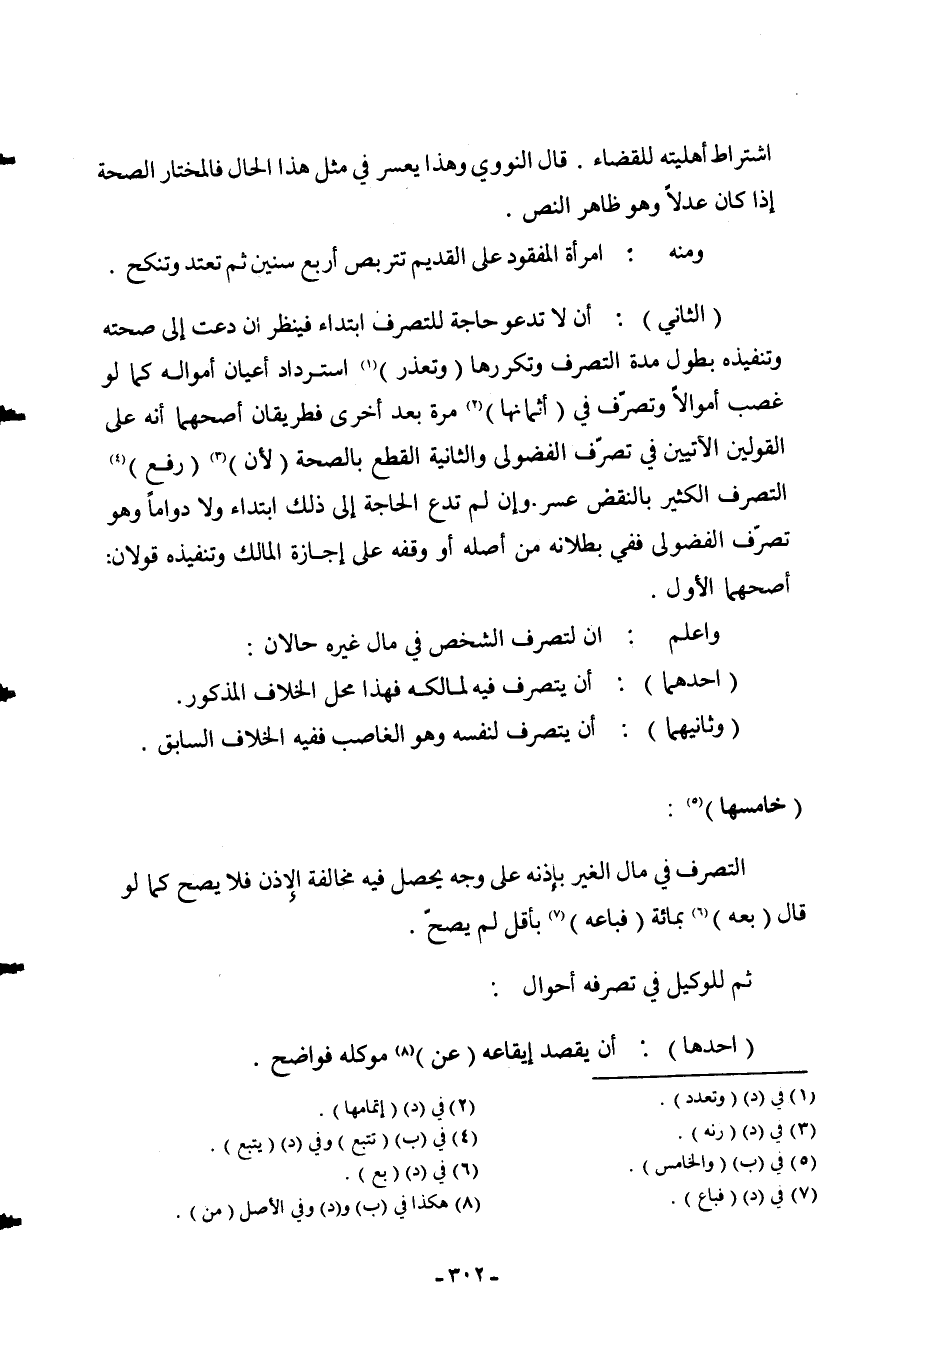 اشتراط أهليته للقضاء . قال النووي وهذا يعسر في مثل هذا الحال فالمختار الصحة
إذا كان عدلاً وهو ظاهر النص .
ومنه : امرأة المفقود على القديم تتربص أربع سنين ثم تعتد وتنكح .
( الثاني ) : أن لا تدعو حاجة للتصرف ابتداء فينظر ان دعت إلى صحته
وتنفيذه بطول مدة التصرف وتكررها ( وتعذر )(١) استرداد أعيان أمواله كما لو
غصب أموالاً وتصرّف في ( أثمانها )(٢) مرة بعد أخرى فطريقان أصحهما أنه على
القولين الآتيين في تصرّف الفضولى والثانية القطع بالصحة ( لأن )(٣) ( رفع )(٤)
التصرف الكثير بالنقض عسر.وإن لم تدع الحاجة إلى ذلك ابتداء ولا دواماً وهو
تصرّف الفضولى ففي بطلانه من أصله أو وقفه على إجازة المالك وتنفيذه قولان:
أصحهما الأول .
واعلم : ان لتصرف الشخص في مال غيره حالان :
( احدهما ) : أن يتصرف فيه لمالكه فهذا محل الخلاف المذكور.
( وثانيهما ) : أن يتصرف لنفسه وهو الغاصب ففيه الخلاف السابق .
( خامسها )(٥) :
التصرف في مال الغير بإذنه على وجه يحصل فيه مخالفة الإذن فلا يصح كما لو
قال ( بعه )(٦) بمائة ( فباعه )(٧) بأقل لم يصحّ .
ثم للوكيل في تصرفه أحوال :
( احدها ) : أن يقصد إيقاعه ( عن )(٨) موكله فواضح .
(١) في (د) ( وتعدد ) . (٢) في (د) ( إتمامها ) .
(٣) في (د) ( رنه ) . (٤) في (ب) ( تتبع ) وفي (د) ( يتبع ) .
(٥) في (ب) ( والخامس ) . (٦) في (د) ( بع ) .
(٧) في (د) ( فباع ) . (٨) هكذا في (ب) و(د) وفي الأصل ( من ) .
- ٣٠٢ -